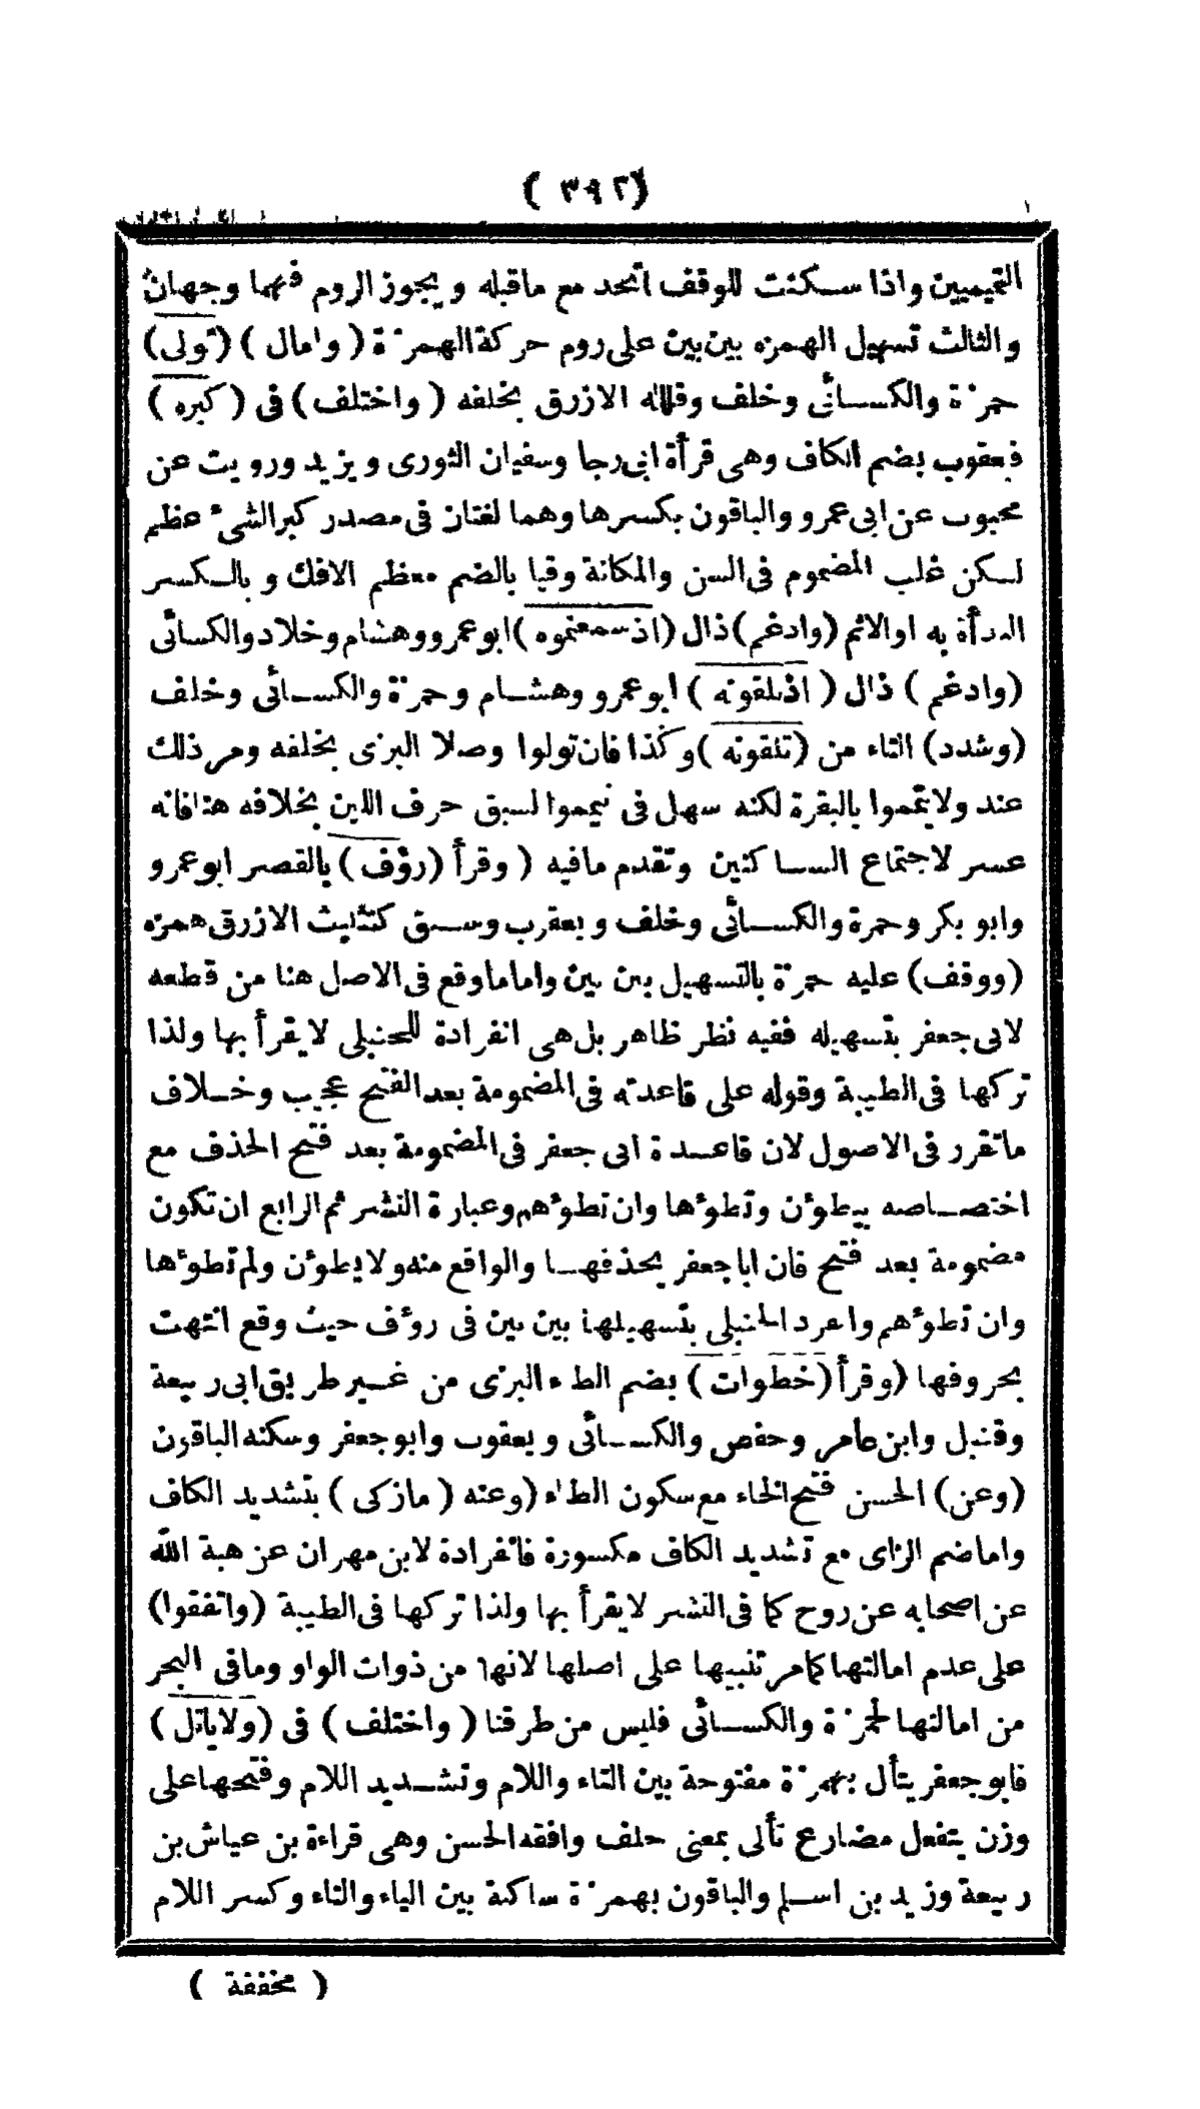 ( ٣٩٢ )
التميميين واذا سكنت للوقف اتحد مع ماقبله ويجوز الروم فهما وجهان
والثالث تسهيل الهمزه بين بين على روم حركة الهمزة ( وامال ) ( تولى )
حمزة والكسائى وخلف وقلله الازرق بخلفه ( واختلف ) فى ( كبره )
فيعقوب بضم الكاف وهى قرأة ابى رجا وسفيان الثورى ويزيد ورويت عن
محبوب عن ابى عمرو والباقون بكسرها وهما لغتان فى مصدر كبر الشئ عظم
لكن غلب المضموم فى السن والمكانة وقيا بالضم معظم الافك و بالكسر
البدأة به او الاثم (وادغم) ذال ( اذ سمعتموه ) ابو عمرو وهشام وخلاد والكسائى
(وادغم ) ذال ( اذتلقونه ) ابو عمرو وهشام وحمزة والكسائى وخلف
(وشدد) التاء من ( تلقونه ) وكذا فان تولوا وصلا البزى بخلفه ومر ذلك
عند ولا تيمموا بالبقرة لكنه سهل فى تيمموا لسبق حرف اللين بخلافه هنا فانه
عسر لاجتماع الساكنين وتقدم مافيه ( وقرأ (رؤف ) بالقصر ابو عمرو
وابو بكر وحمزة والكسائى وخلف ويعقوب وسبق كتثليث الازرق همزه
(ووقف) عليه حمزة بالتسهيل بين بين واما ماوقع فى الاصل هنا من قطعه
لابى جعفر بتسهيله ففيه نظر ظاهر بل هى انفرادة للحنبلى لا يقرأ بها ولذا
تركها فى الطيبة وقوله على قاعدته فى المضمومة بعد الفتح عجيب وخلاف
ماتقرر فى الاصول لان قاعدة ابى جعفر فى المضمومة بعد فتح الحذف مع
اختصاصه بيطؤن وتطؤها وان تطؤهم وعبارة النشر ثم الرابع ان تكون
مضمومة بعد فتح فان ابا جعفر يحذفها والواقع منه ولا يطؤن ولم تطؤها
وان تطؤهم وانفرد الحنبلى بتسهيلها بين بين فى رؤف حيث وقع انتهت
بحروفها (وقرأ ( خطوات ) بضم الطاء البزى من غير طريق ابى ربيعة
وقنبل وابن عامر وحفص والكسائى ويعقوب وابو جعفر وسكنه الباقون
(وعن) الحسن فتح الخاء مع سكون الطاء (وعنه ( مازكى ) بتشديد الكاف
واما ضم الزاى مع تشديد الكاف مكسورة فانفرادة لابن مهران عن هبة الله
عن اصحابه عن روح كما فى النشر لا يقرأ بها ولذا تركها فى الطيبة (واتفقوا)
على عدم امالتها كما مر تنبيها على اصلها لانها من ذوات الواو ومافى البحر
من امالتها لحمزة والكسائى فليس من طرقنا ( واختلف ) فى (ولا يأتل )
فابو جعفر يتأل بهمزة مفتوحة بين التاء واللام وتشديد اللام وفتحها على
وزن يتفعل مضارع تألى بمعنى حلف وافقه الحسن وهى قراءة بن عياش بن
ربيعة وزيد بن اسلم والباقون بهمزة ساكنة بين الياء والتاء وكسر اللام
( مخففة )